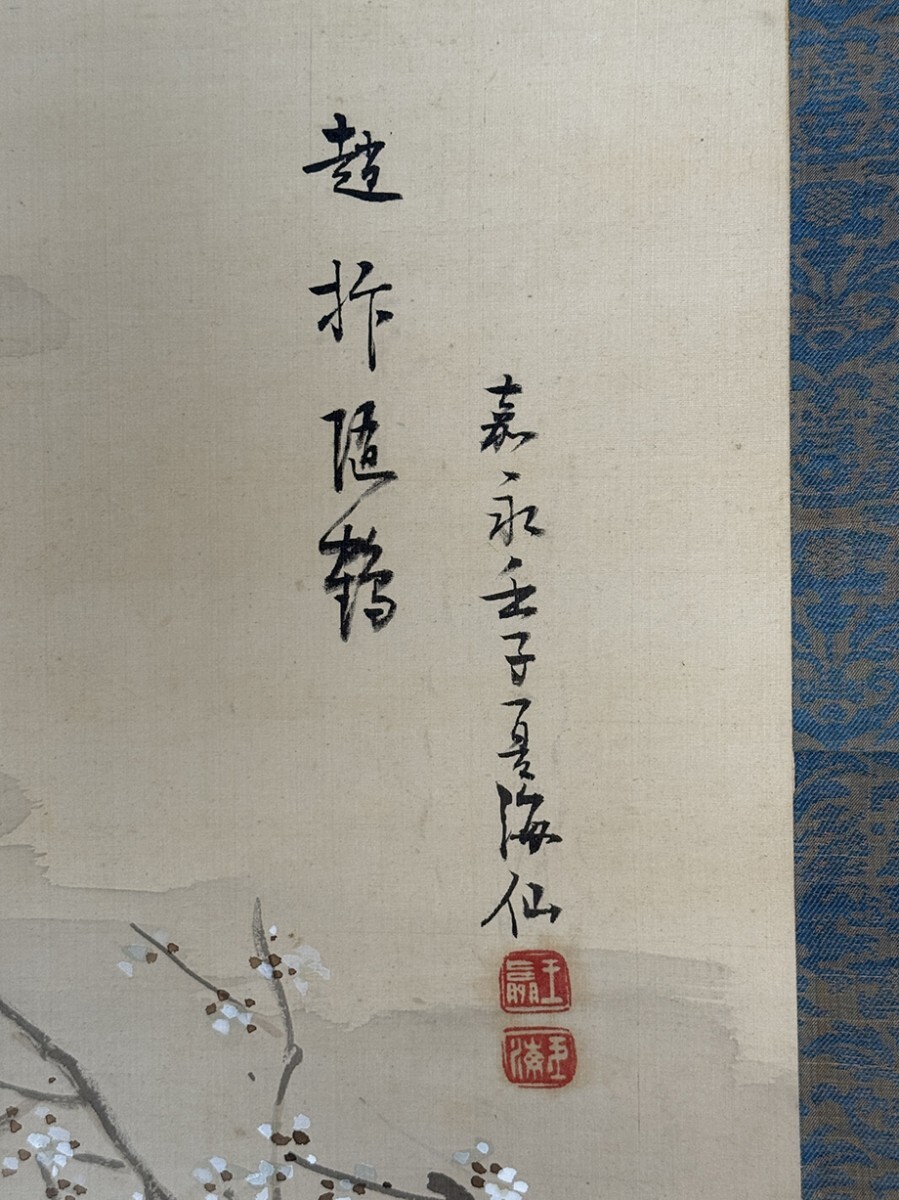 趙抃随鶴
嘉永壬子夏海仙